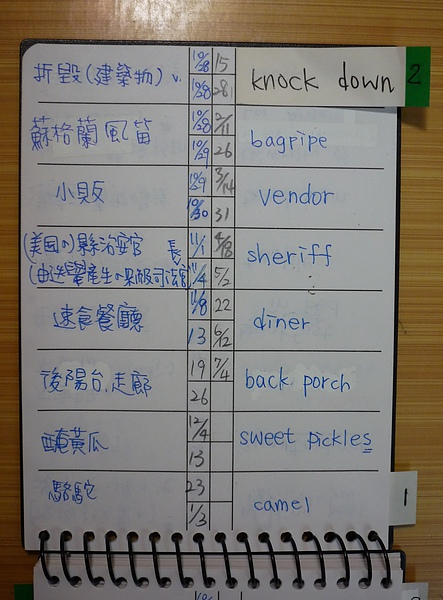 折毀(建築物) v. 10/28 15 knock down 2
10/28 28
蘇格蘭風笛 10/28 2/11 bagpipe
10/29 26
小販 10/29 3/14 vendor
10/30 31
(美國的)縣治安官 長 11/1 4/18 sheriff
(由選舉產生的 11/4 5/2
速食餐廳 11/8 22 diner
13 6/12
後陽台.走廊 19 7/4 back porch
26
醃黃瓜 12/4 sweet pickles
13
駱駝 23 camel 1
1/3